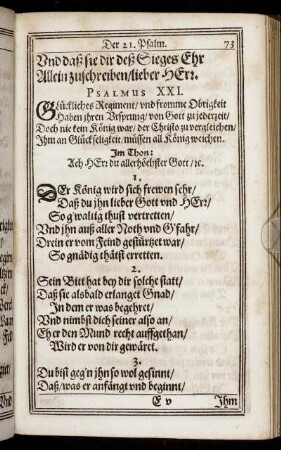 Der 21. Psalm. 73
Vnd daß sie dir deß Sieges Ehr
Allein zuschreiben/lieber HErꝛ.
PSALMUS XXI.
Glückliches Regiment/ vnd fromme Obrigkeit
Haben jhren Vrsprung/ von Gott zu jederzeit/
Doch nie kein König war/ der Christo zu vergleichen/
Jhm an Glückseligkeit/ müssen all König weichen.
Jm Thon:
Ach HErꝛ du allerhöchster Gott/ ꝛc.
1.
DEr König wird sich frewen sehr/
Daß du jhn lieber Gott vnd HErꝛ/
So gwaltig thust vertretten/
Vnd jhn auß aller Noth vnd G'fahr/
Drein er vom Feind gestürtzet war/
So gnädig thätst erretten.
2.
Sein Bitt hat bey dir solche statt/
Daß sie alsbald erlanget Gnad/
Jn dem er was begehret/
Vnd nimbst dich seiner also an/
Eh er den Mund recht auffgethan/
Wird er von dir gewäret.
3.
Du bist geg'n jhn so wol gesinnt/
Daß/ was er anfängt vnd beginnt/
E v Jhm